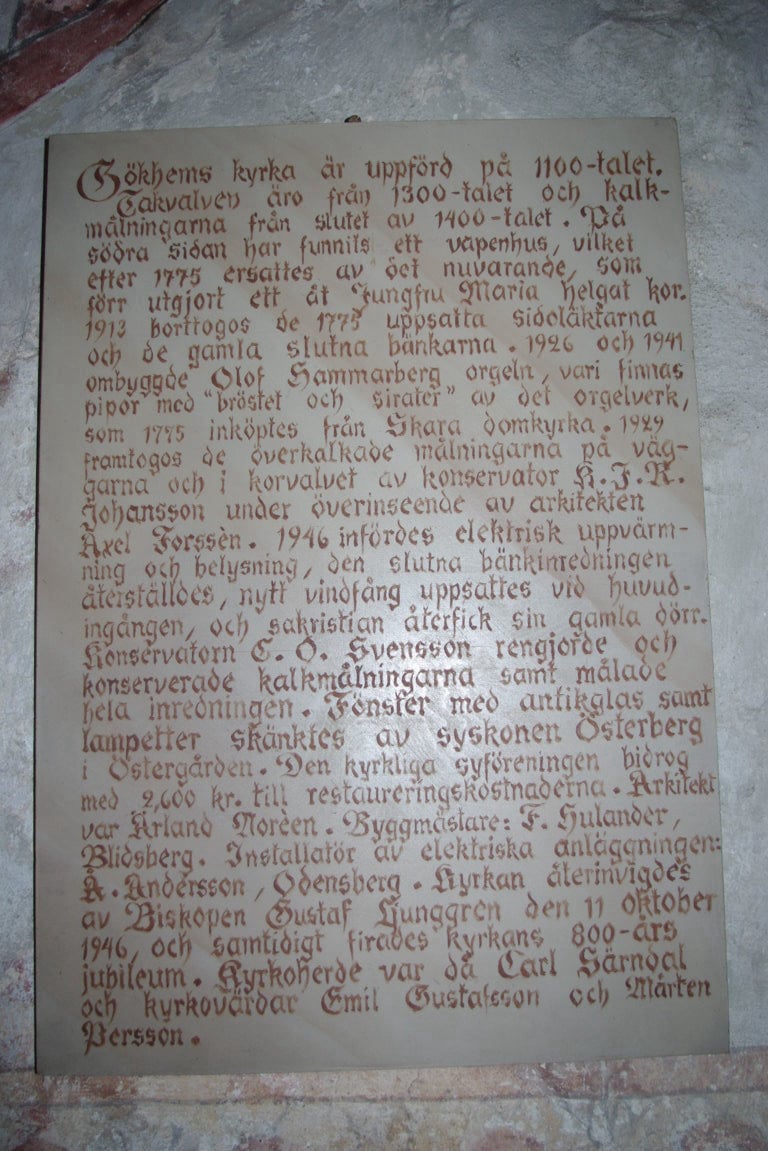 Gökhems kyrka är uppförd på 1100-talet.
Takvalven äro från 1300-talet och kalk-
målningarna från slutet av 1400-talet. På
södra sidan har funnits ett vapenhus, vilket
efter 1775 ersattes av det nuvarande, som
förr utgjort ett åt Jungfru Maria helgat kor.
1913 borttogos de 1775 uppsatta sidoläktarna
och de gamla slutna bänkarna. 1926 och 1941
ombyggde Olof Hammarberg orgeln, vari finnas
pipor med "bröstet och sirater" av det orgelverk,
som 1775 inköptes från Skara domkyrka. 1929
framtogos de överkalkade målningarna på väg-
garna och i korvalvet av konservator K.J.R.
Johansson under överinseende av arkitekten
Axel Forssèn. 1946 infördes elektrisk uppvärm-
ning och belysning, den slutna bänkinredningen
återställdes, nytt vindfång uppsattes vid huvud-
ingången, och sakristian återfick sin gamla dörr.
Konservatorn C. O. Svensson rengjorde och
konserverade kalkmålningarna samt målade
hela inredningen. Fönster med antikglas samt
lampetter skänktes av syskonen Österberg
i Östergården. Den kyrkliga syföreningen bidrog
med 2,600 kr. till restaureringskostnaderna. Arkitekt
var Ärland Norèen. Byggmästare: F. Hulander,
Blidsberg. Installatör av elektriska anläggningen:
A. Andersson, Odensberg. Kyrkan återinvigdes
av Biskopen Gustaf Ljunggren den 11 oktober
1946, och samtidigt firades kyrkans 800-års
jubileum. Kyrkoherde var då Carl Särndal
och kyrkovärdar Emil Gustafsson och Mårten
Persson.